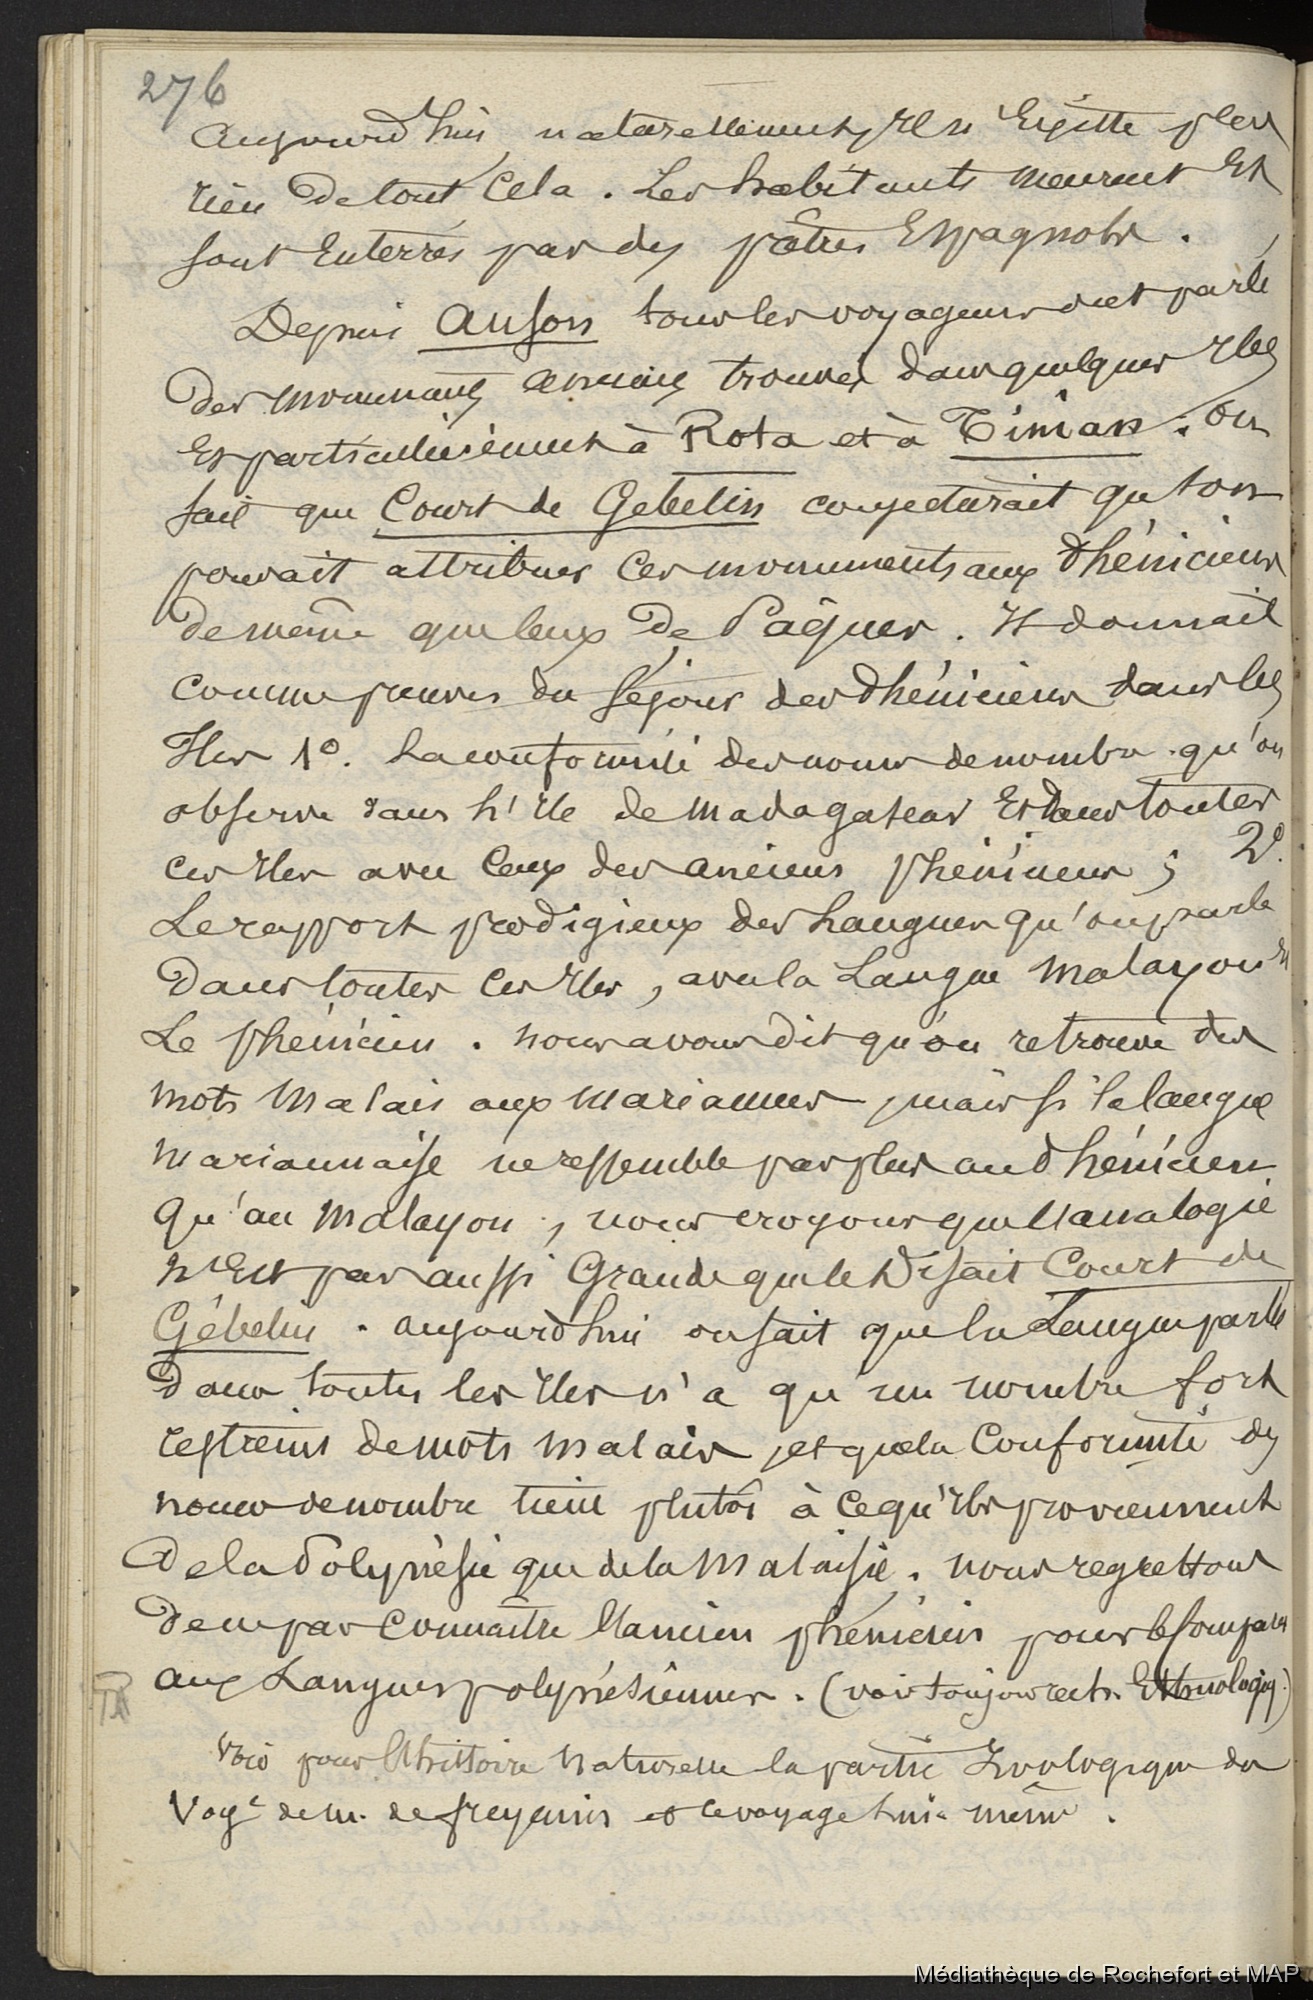 276
Aujourd'hui naturellement, il n'existe plus
rien de tout cela. Les habitants meurent et
sont enterrés par des pâtres Espagnols.
Depuis Anson tous les voyageurs ont parlé
des monumants anciens trouvés dans quelques Iles
et particulièrement à Rota et à Tinian. On
sait que Court de Gebelin conjecturait qu'on
pouvait attribuer ces monuments aux Phéniciens
de même que ceux de Pâques. Il donnait
comme preuves du séjour des Phéniciens dans les
Iles 1º. La conformité des noms de nombre qu'on
observe dans l'Ile de Madagascar et dans toutes
ces Iles avec ceux des anciens phéniciens ; 2º.
Le rapport prodigieux des Langues qu'on parle
dans toutes ces Iles, avec la Langue malayou et
Le phénicien. nous avons dit qu'on retrouve des
mots Malais aux mariannes, mais si la langue
mariannaise ne ressemble pas plus au Phénicien
qu'au malayou, nous croyons que l'analogie
n'est pas aussi Grande que le disait Court de
Gébelin. aujourd'hui on sait que la Langue parlée
dans toutes les Iles n'a qu'un nombre fort
restreint de mots malais, et que la Conformité des
noms de nombre tient plutôt à ce qu'ils proviennent
de la Polynésie que de la Malaisie. nous regrettons
de ne pas connaitre l'ancien phénicien pour le comparer
aux Langues polynésiennes. (voir toujours rech. Ethnologiq.)
Voir pour l'histoire naturelle la partie Zoologique du
Voyᵉ de M. de freycinis et le voyage lui-même.
Médiathèque de Rochefort et MAP